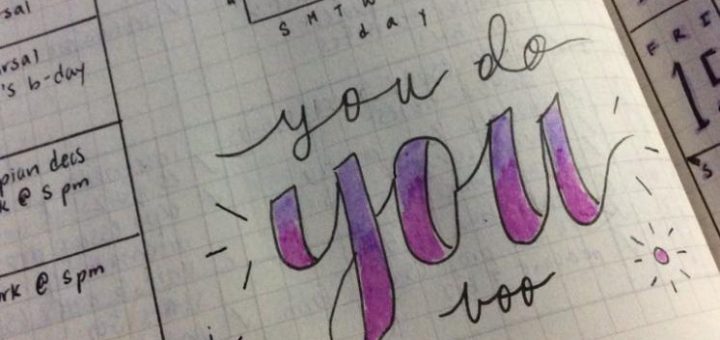 sal
rsal
's b-day
pian decs
k @ 5 pm
rk @ 5pm
S M T W
day
you do
you
boo
FRI
15
S